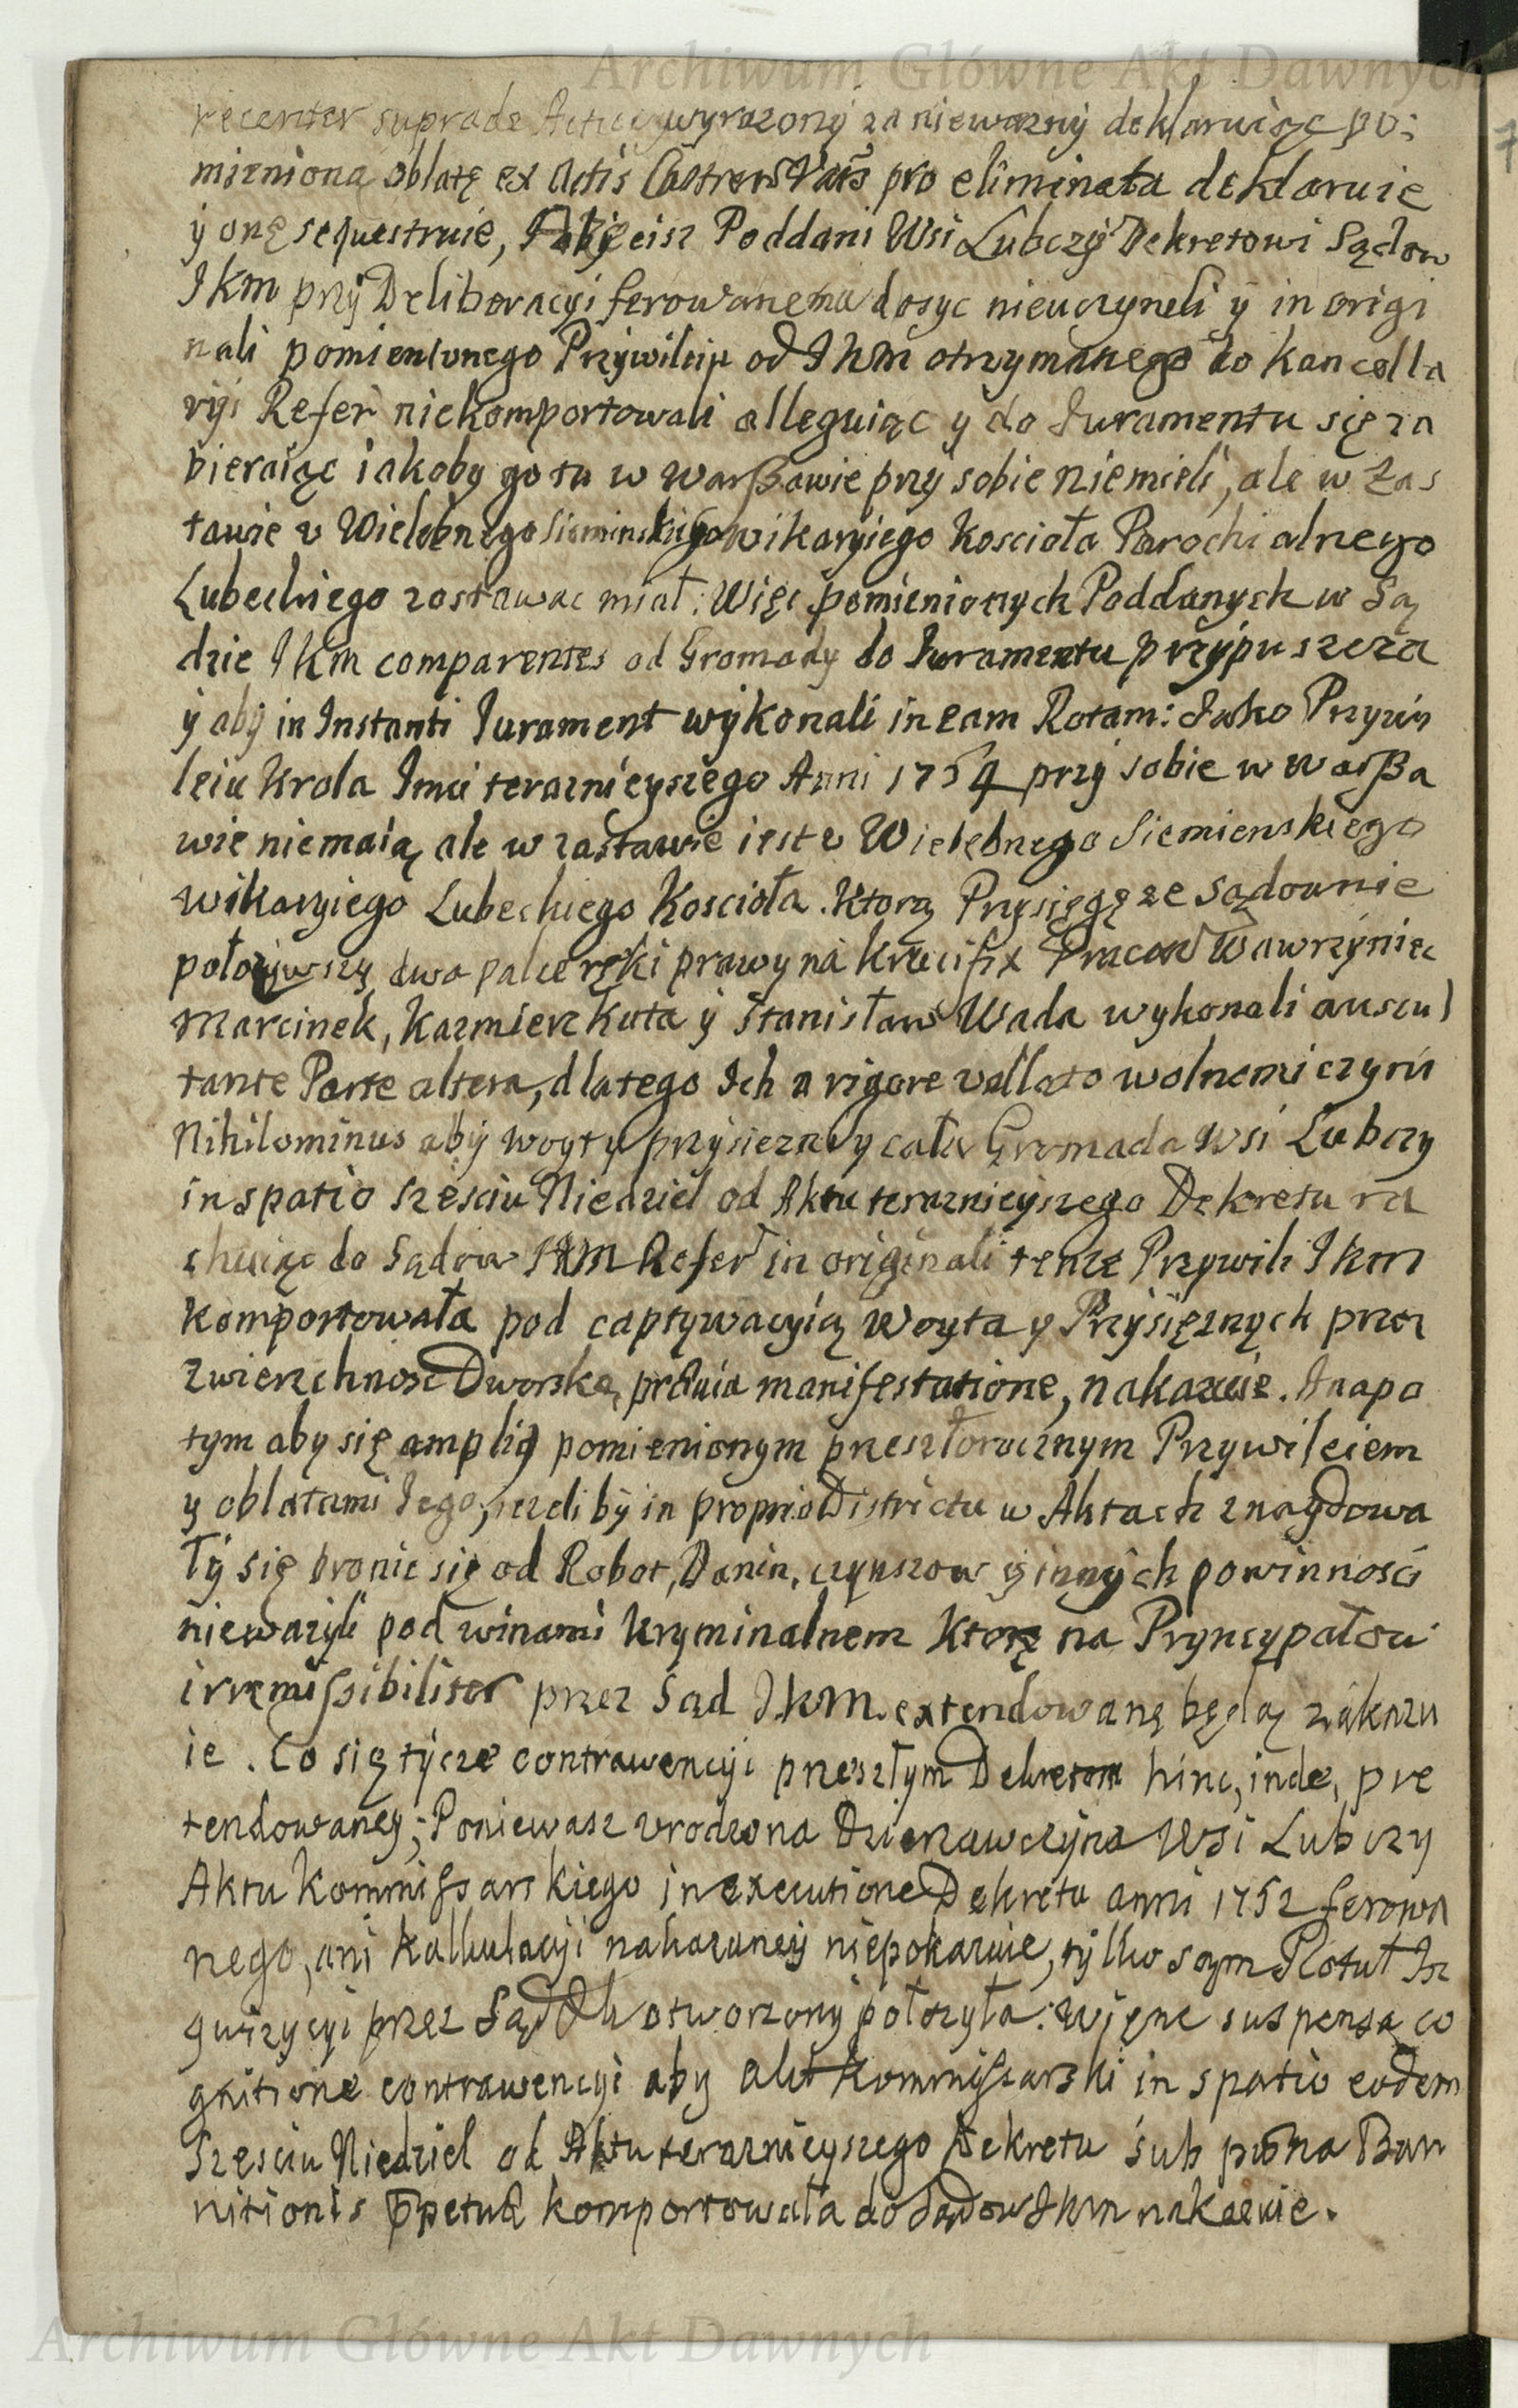 Archiwum Główne Akt Dawnych
recenter wyrazony za niewazny deklaruiąc po:
mienioną oblatę ex Actis Castren Vars pro eliminata deklaruie
y onę sequestruie, Poddani Wsi Lubczy Dekretowi Sądow
JKm przy Deliberacyi ferowanemu dosyc nieuczyneli y in origi
nali pomienionego Przywileiu od JKm otrzymanego do kancella
ryi Refer niekomportowali alleguiąc y do Juramentu się za
bieraiąc iakoby go tu w Warßawie przy sobie niemieli, ale w Zas
tawie v Wielebnego Sieminskiego wikaryiego Koscioła Parochialnego
Lubeckiego zostawac miał: Więc pomienionych Poddanych w Są
dzie JKm comparentes od Gromady do Juramentu przypuszcza
y aby in Instanti Jurament wykonali in eam Rotam: Jako Przywi
leiu Krola Jmci teraznieyszego Anni 1754 przy sobie w Warßa
wie niemaią, ale w zastawie iest v Wielebnego Siemienskiego
wikaryiego Lubeckiego Koscioła. Ktorą Przysięgę ze sądownie
położywszy dwa palce ręki prawy na krucifix Wawrzyniec
Marcinek, Kazmierz Kuta y Stanisław Wada wykonali auscul
tante Parte altera, dlatego Ich a rigore vallato wolnemi czyni
Nihilominus aby woyt y przysiezni y cała Gromada Wsi Lubczy
in spatio szesciu Niedziel od Aktu teraznieyszego Dekretu ra
chuiąc do Sądow JKM Refer in originali tenze Przywili JKm
komportowała pod captywacyią Woyta y Przysięznych przez
Zwierzchnosc Dworską, prævia manifestatione, nakazuie. A na po
tym aby się amplius pomienionym przeszłorocznym Przywileiem
y oblatami Jego, iezeliby in proprio Districtu w Aktach znaydowa
ły się bronic się od Robot, Danin, czynszow y innych powinnosci
niewazyli pod winami kryminalnem ktorę na Pryncypałow
irremissibiliter przez Sąd J.K.M. extendowanę będą zakazu
ie. Co się tycze contrawencyi przeszłym Dekretom hinc, inde, pre
tendowaney; Poniewasz vrodzona Dzierzawczyna Wsi Lubczy
Aktu Kommissarskiego in executione Dekretu anni 1752 ferowa
nego, ani kalkulacyi nakazaney niepokazuie, tylko sam Rotuł In
quizycyi przez Sąd otworzony połozyła: Więc suspensa co
gnitione contrawencyi aby Akt Kommissarski in spatio eodem
Szesciu Niedziel od Aktu teraznieyszego Dekretu sub pœna Ban
nitionis ppetuæ komportowała do Sądow JKm nakazuie.
Archiwum Główne Akt Dawnych